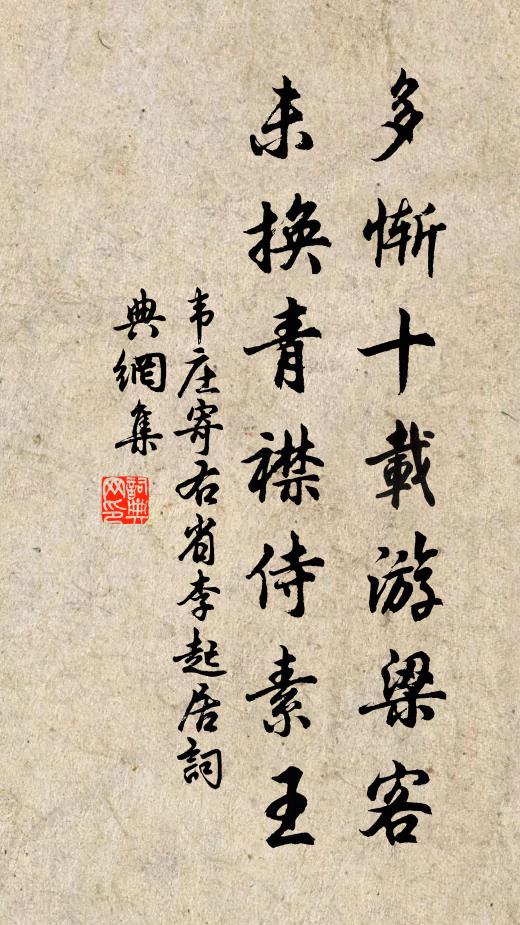 多慚十載游梁客
未換青襟侍素王
韦庄寄右省李起居詞
典網集
詞典网印